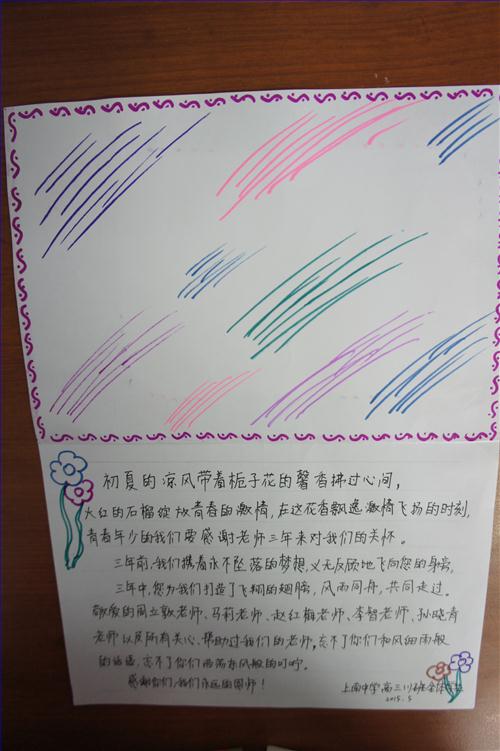 初夏的凉风带着栀子花的馨香拂过心间，
火红的石榴绽放青春的激情，在这花香飘逸激情飞扬的时刻，
青春年少的我们要感谢老师三年来对我们的关怀。
三年前，我们携着永不坠落的梦想，义无反顾地飞向您的身旁，
三年中，您为我们打造了飞翔的翅膀，风雨同舟，共同走过。
敬爱的周立敦老师、马莉老师、赵红梅老师、李智老师、孙晓青
老师以及所有关心、帮助过我们的老师，忘不了你们和风细雨般
的话语，忘不了你们春风般的叮咛。
感谢你们，我们永远的恩师！
上南中学高三班全体
2015.5